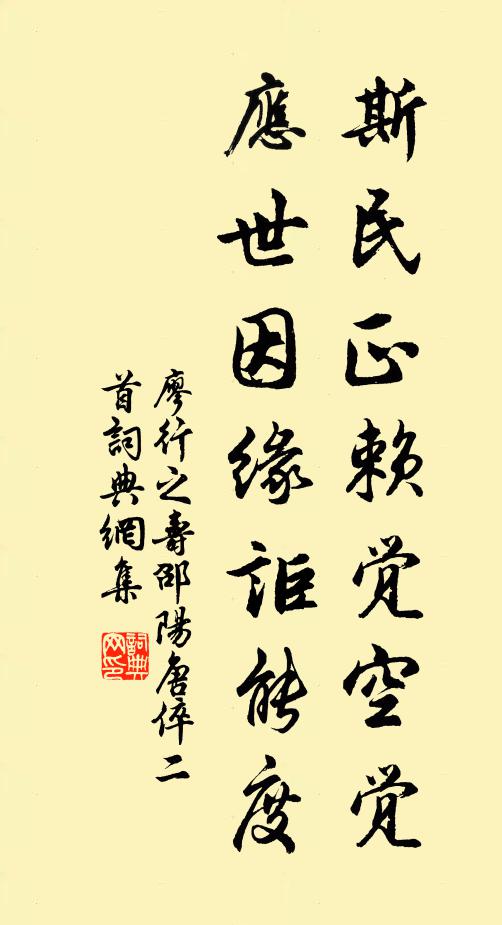 斯民正赖觉空觉
應世因緣詎能度
廖行之壽邵陽唐倅二
首詞典網集
詞典
网印